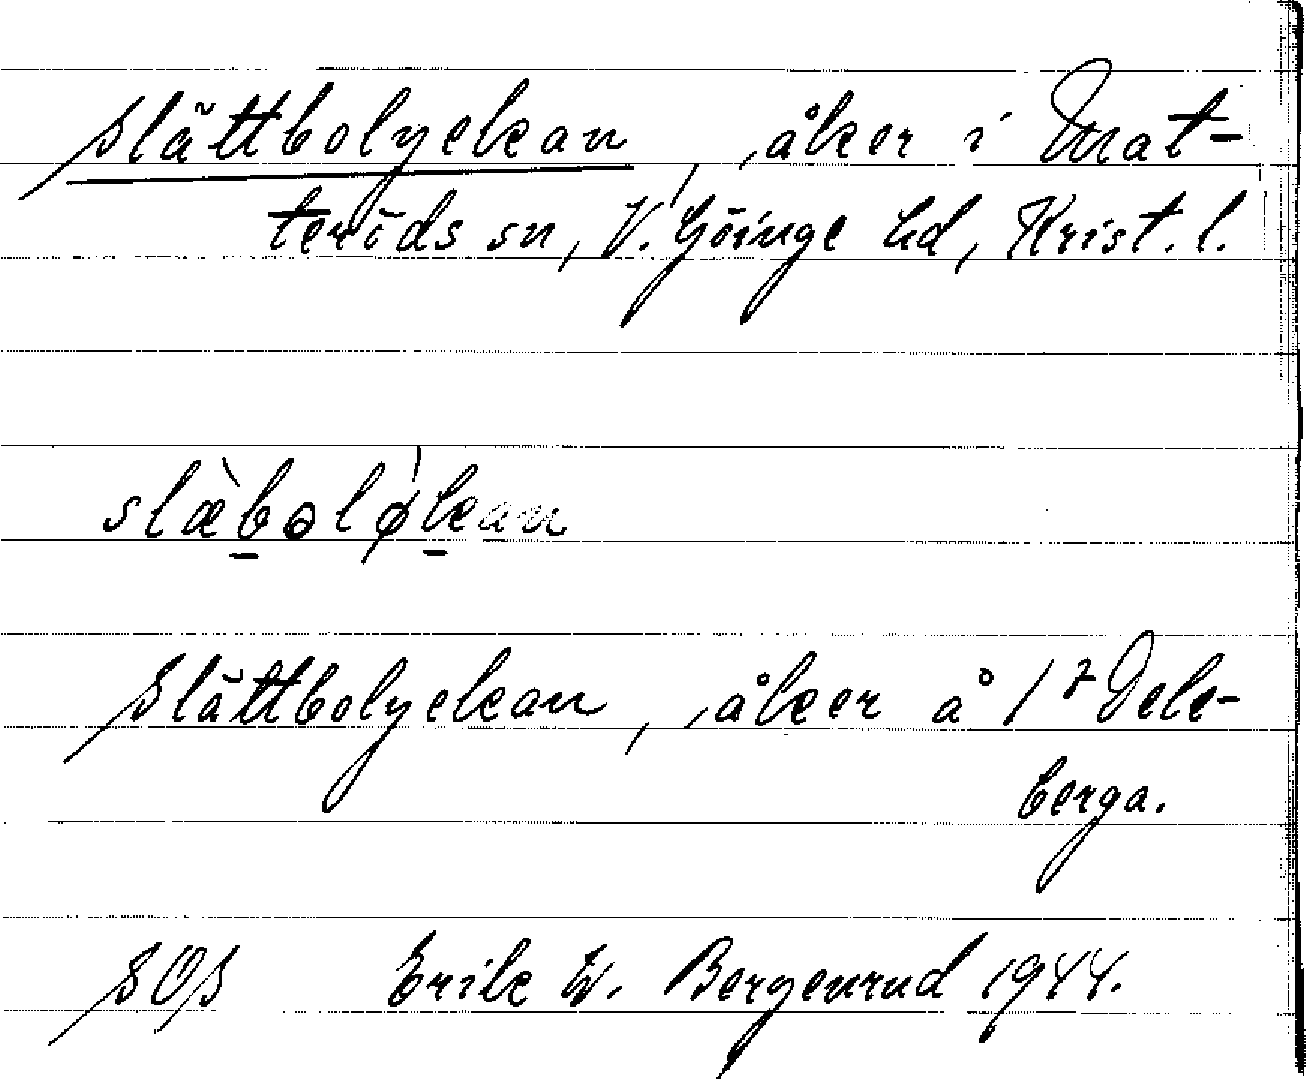 Slättbolyckan, åker i Mat-
teröds sn, V. Göinge hd, Krist. l.
slæ̀bəlø̀kan
Slättbolyckan, åker å 1² Dele-
berga.
SOS Erik W. Bergenrud 1944.